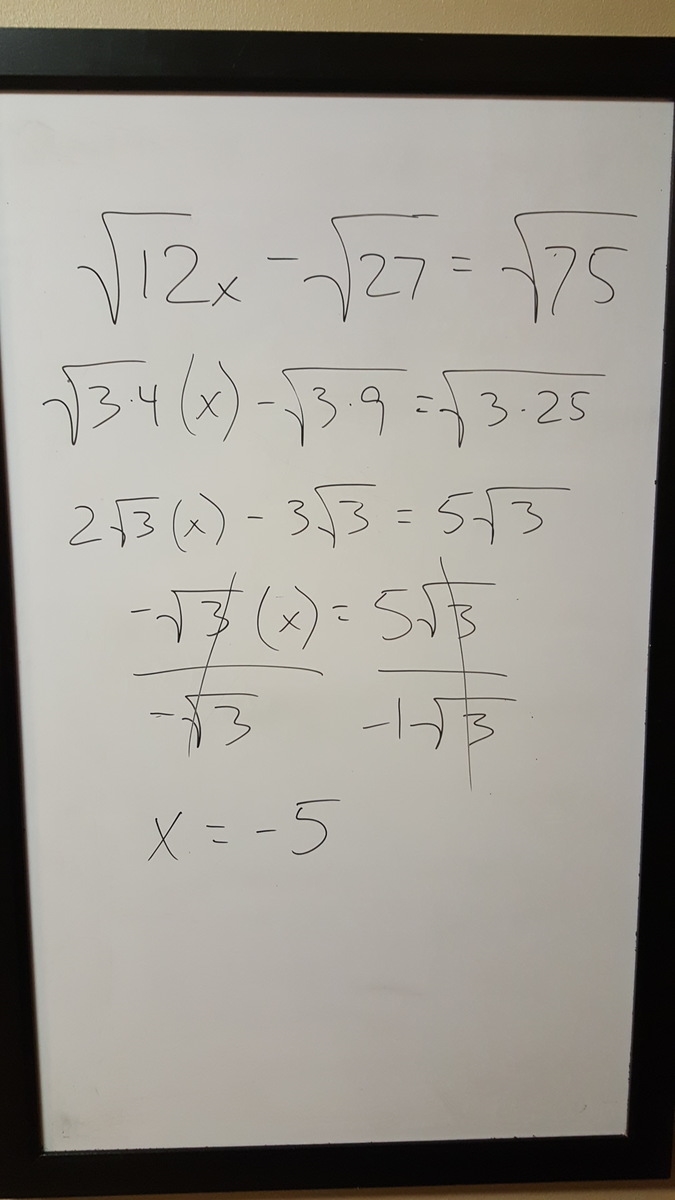 √12x - √27 = √75
√3·4 (x) - √3·9 = √3·25
2√3 (x) - 3√3 = 5√3
-√3 (x) = 5√3
-√3 -1√3
x = -5